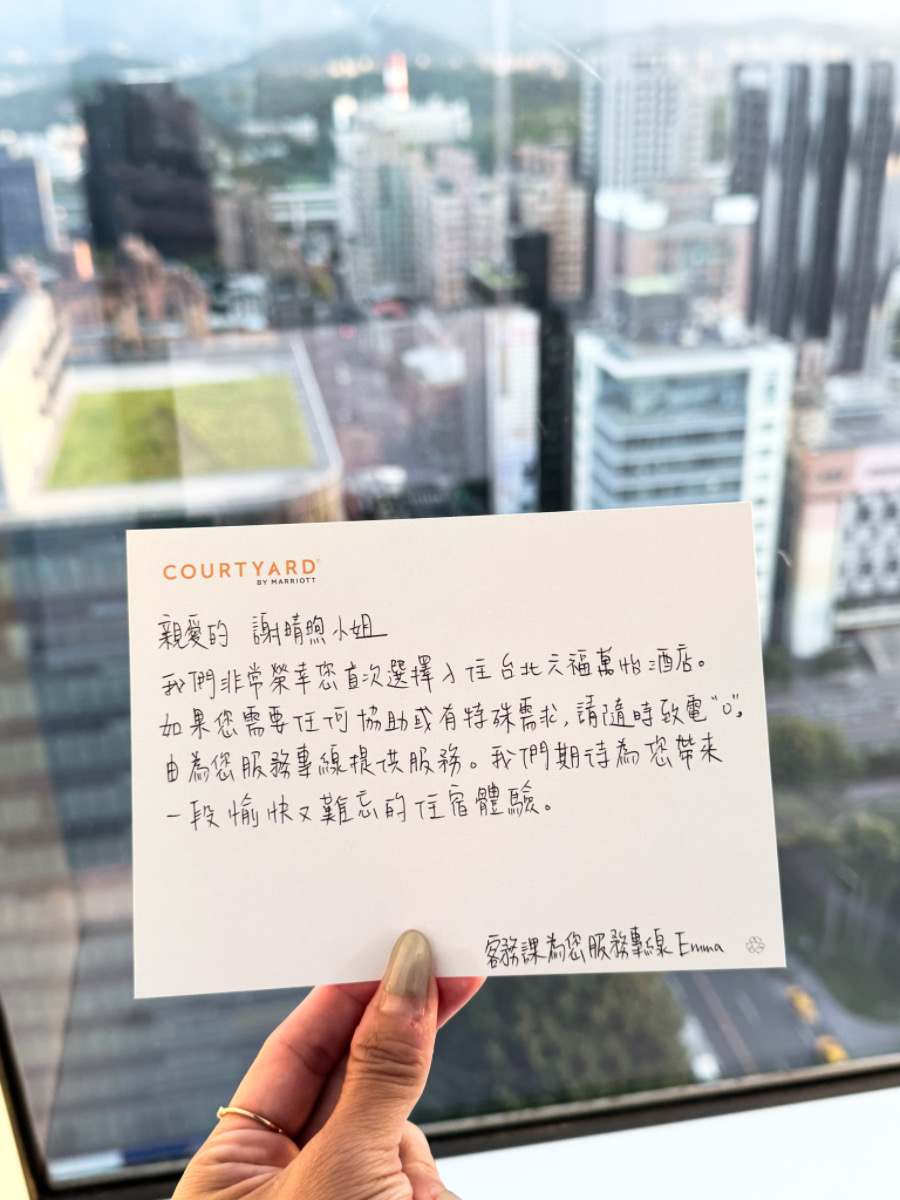 COURTYARD
BY MARRIOTT
親愛的 謝晴煦小姐
我們非常榮幸您首次選擇入住台北六福萬怡酒店。
如果您需要任何協助或有特殊需求,請隨時致電“0”,
由為您服務專線提供服務。我們期待為您帶來
一段愉快又難忘的住宿體驗。
客務課為您服務專線 Emma